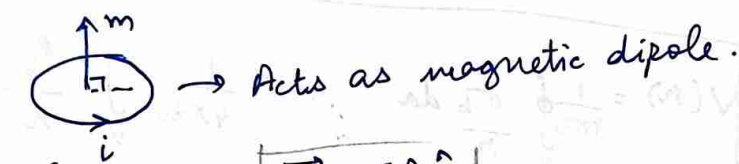 m
→ Acts as magnetic dipole.
i